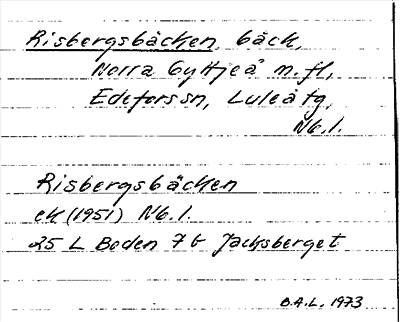 Risbergsbäcken, bäck,
Norra Gyttjeå m.fl,
Edeforssn, Luleå tg,
Nb.l.
Risbergsbäcken
ek (1951) Nb.l.
25 L Boden 7b Jacksberget
D.A.L. 1973